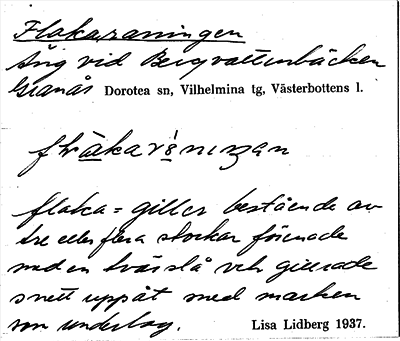 Flakaraningen
Äng vid Bergvattenbäcken
Granås Dorotea sn, Vilhelmina tg, Västerbottens l.
flaka = giller bestående av
tre eller flera stockar förenade
med en tvärslå och gillrade
snett uppåt med marken
som underlag.
Lisa Lidberg 1937.